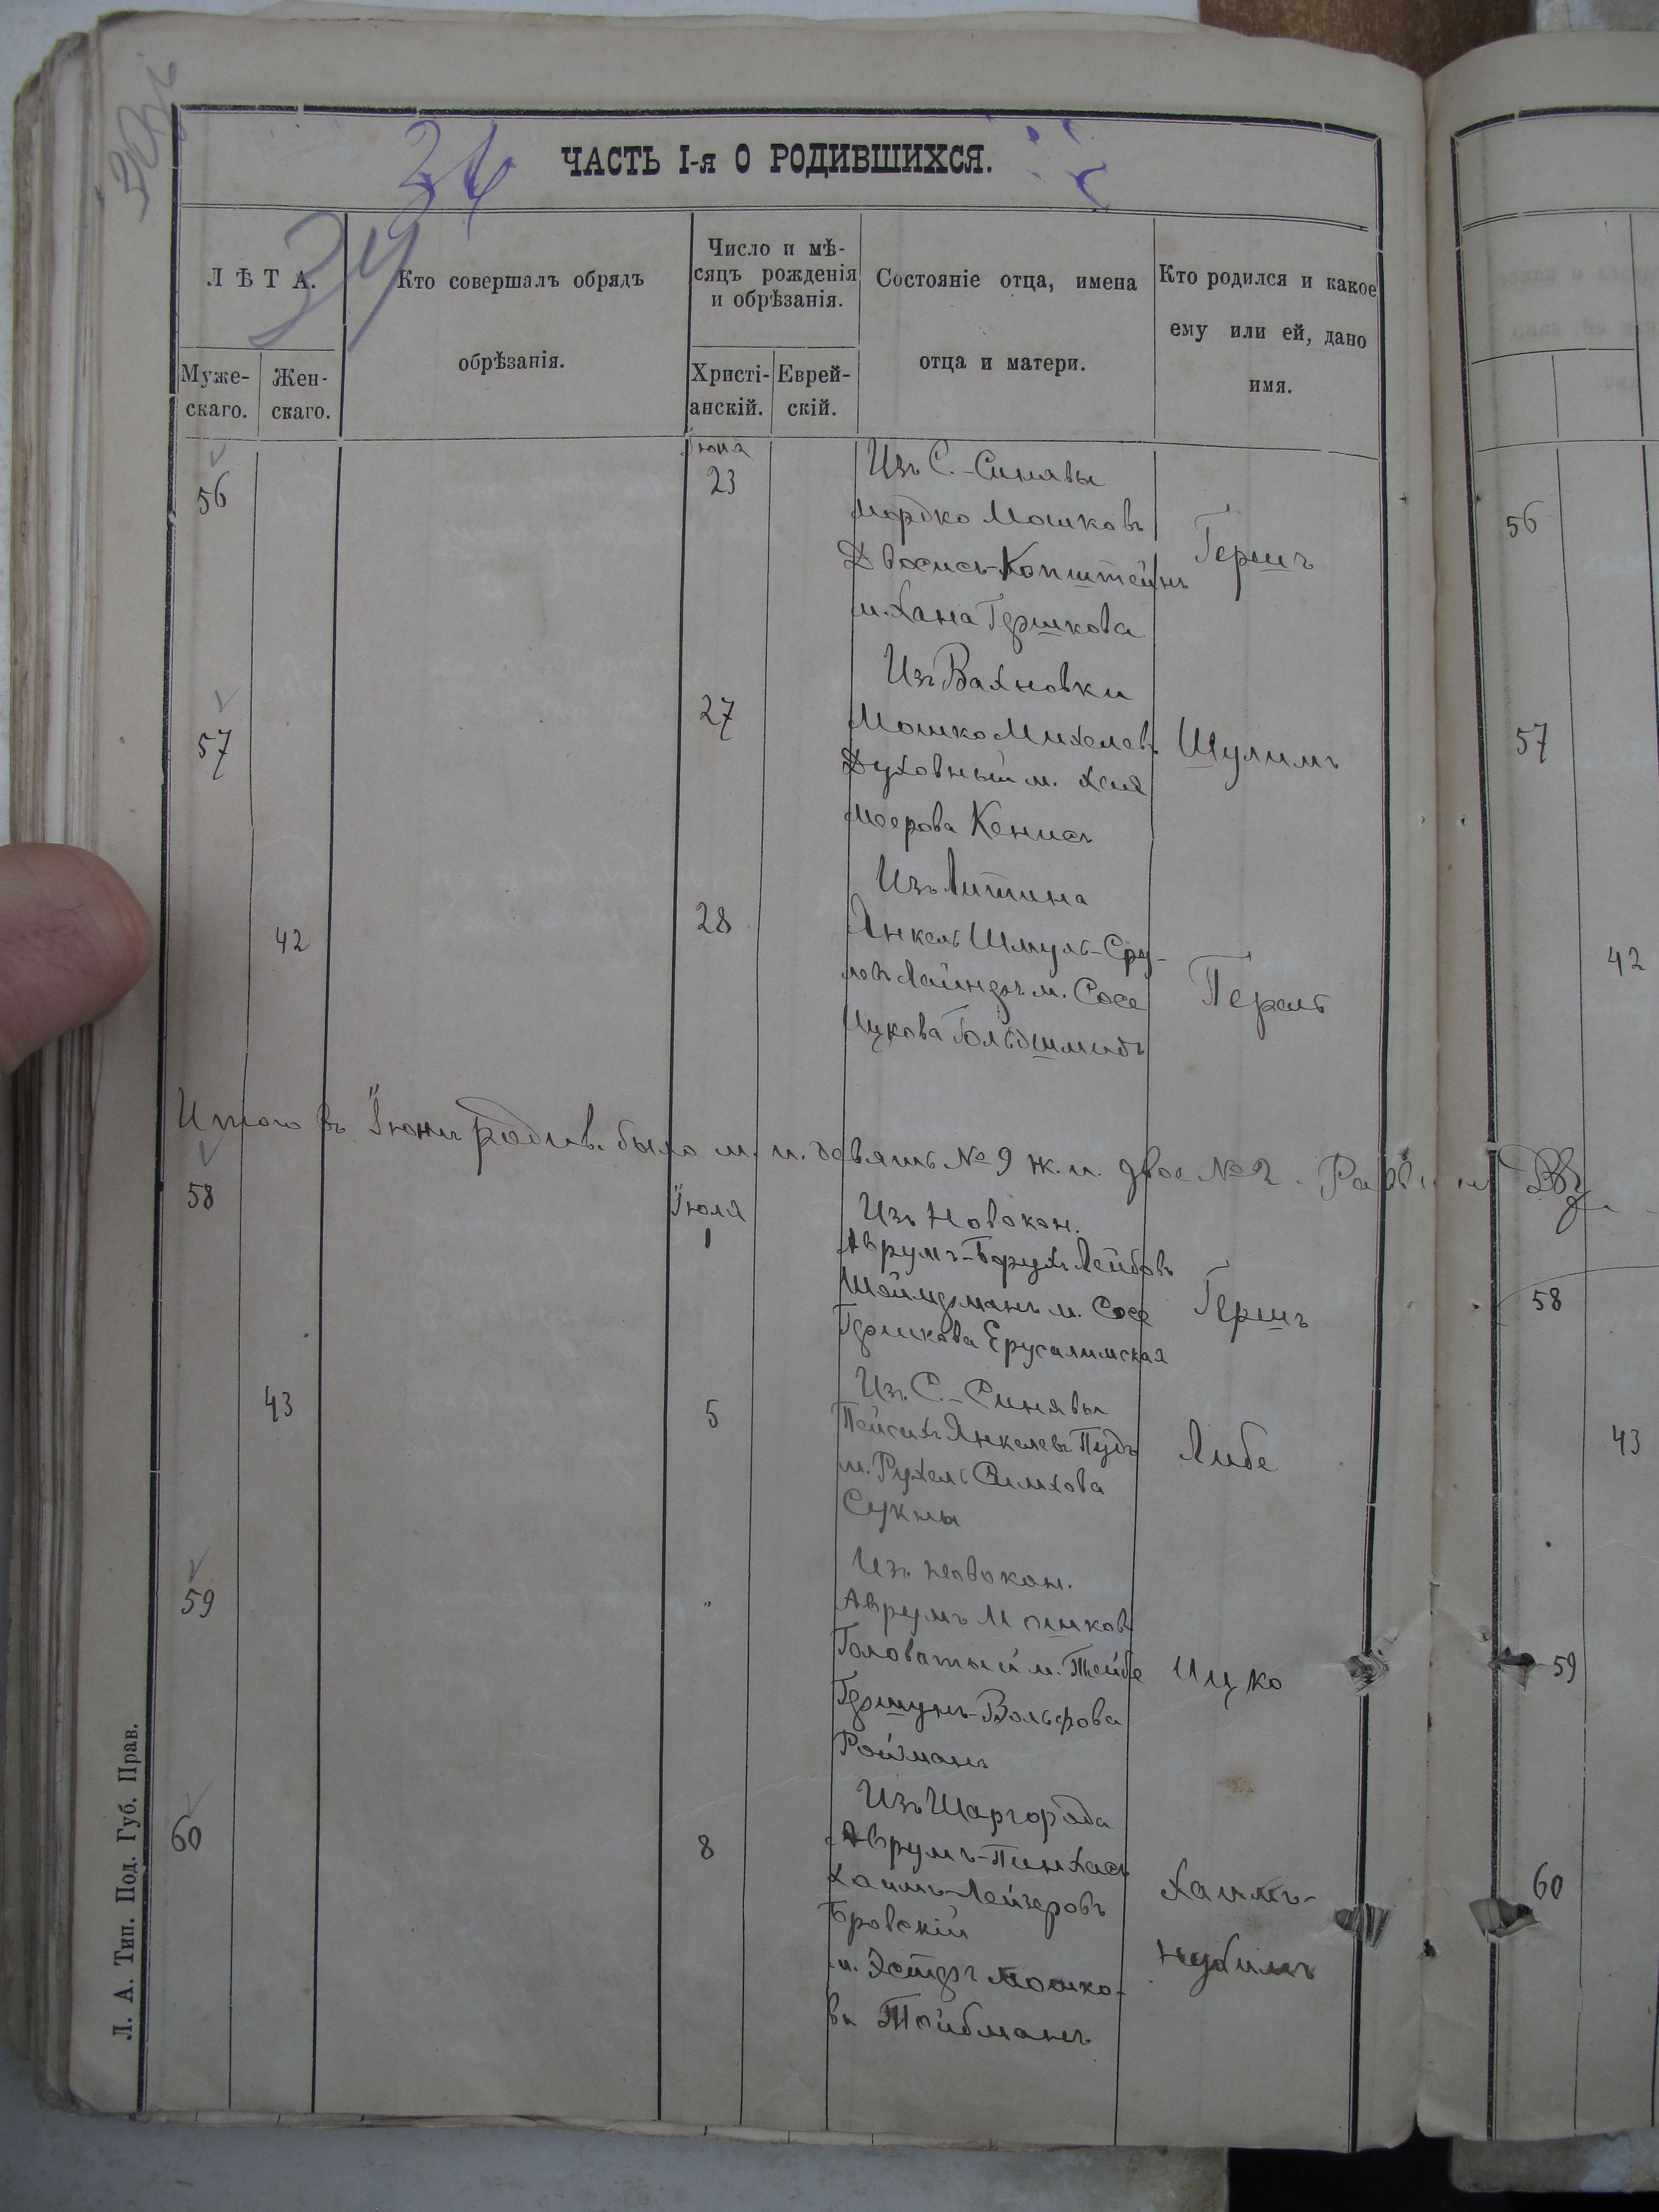 34
ЧАСТЬ I-я О РОДИВШИХСЯ.
34
ЛѢТА.
Муже-
скаго.
Жен-
скаго.
Кто совершалъ обрядъ
обрѣзанія.
Число и мѣ-
сяцъ рожденія
и обрѣзанія.
Христі-
анскій.
Еврей-
скій.
Состояніе отца, имена
отца и матери.
Кто родился и какое
ему или ей, дано
имя.
Іюня
56
23
Изъ С.-Синявы
Мордко Мошковъ
Двосисъ-Копштейнъ
м. Хана Гершкова
Гершъ
56
57
27
Изъ Вахновки
Мошко Михелевъ
Духовный м. Хая
Меерова Кенисъ
Шулимъ
57
42
28
Изъ Литина
Янкель Шмуль-Сру-
м. Сосе
Ицкова Гольдшмидъ
Перель
42
Итого въ Іюнѣ родив. было м. п. девять №9 ж. п. двое №2. Раввинъ
58
Іюля
1
Изъ Новокон.
Аврумъ-Борухъ Лейбовъ
м. Сосе
Гершкова Ерусалимская
Гершъ
58
43
5
Изъ С.-Синявы
Пейсихъ Янкелевъ Пудъ
м. Рухель Симхова
Сукны
Либе
43
59
"
Изъ Новокон.
Аврумъ Мошковъ
Головатый м. Тейбе
Гершунъ-Вольфова
Ройзманъ
Ицко
59
60
8
Изъ Шаргорода
Аврумъ-Пинхасъ
Хаимъ-Лейзеровъ
Бровскій
м. Эстеръ Мошко-
ва Тойбманъ
Хаимъ-
Нухимъ
60
Л. А. Тип. Под. Губ. Прав.